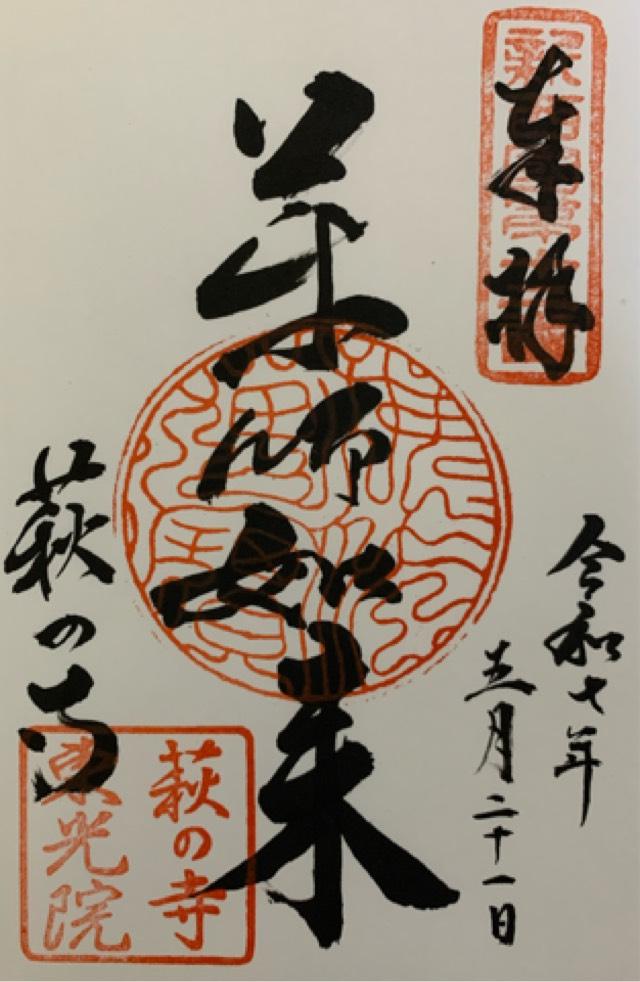 奉拝
令和七年
五月二十一日
薬師如来
萩の寺
萩の寺
東光院